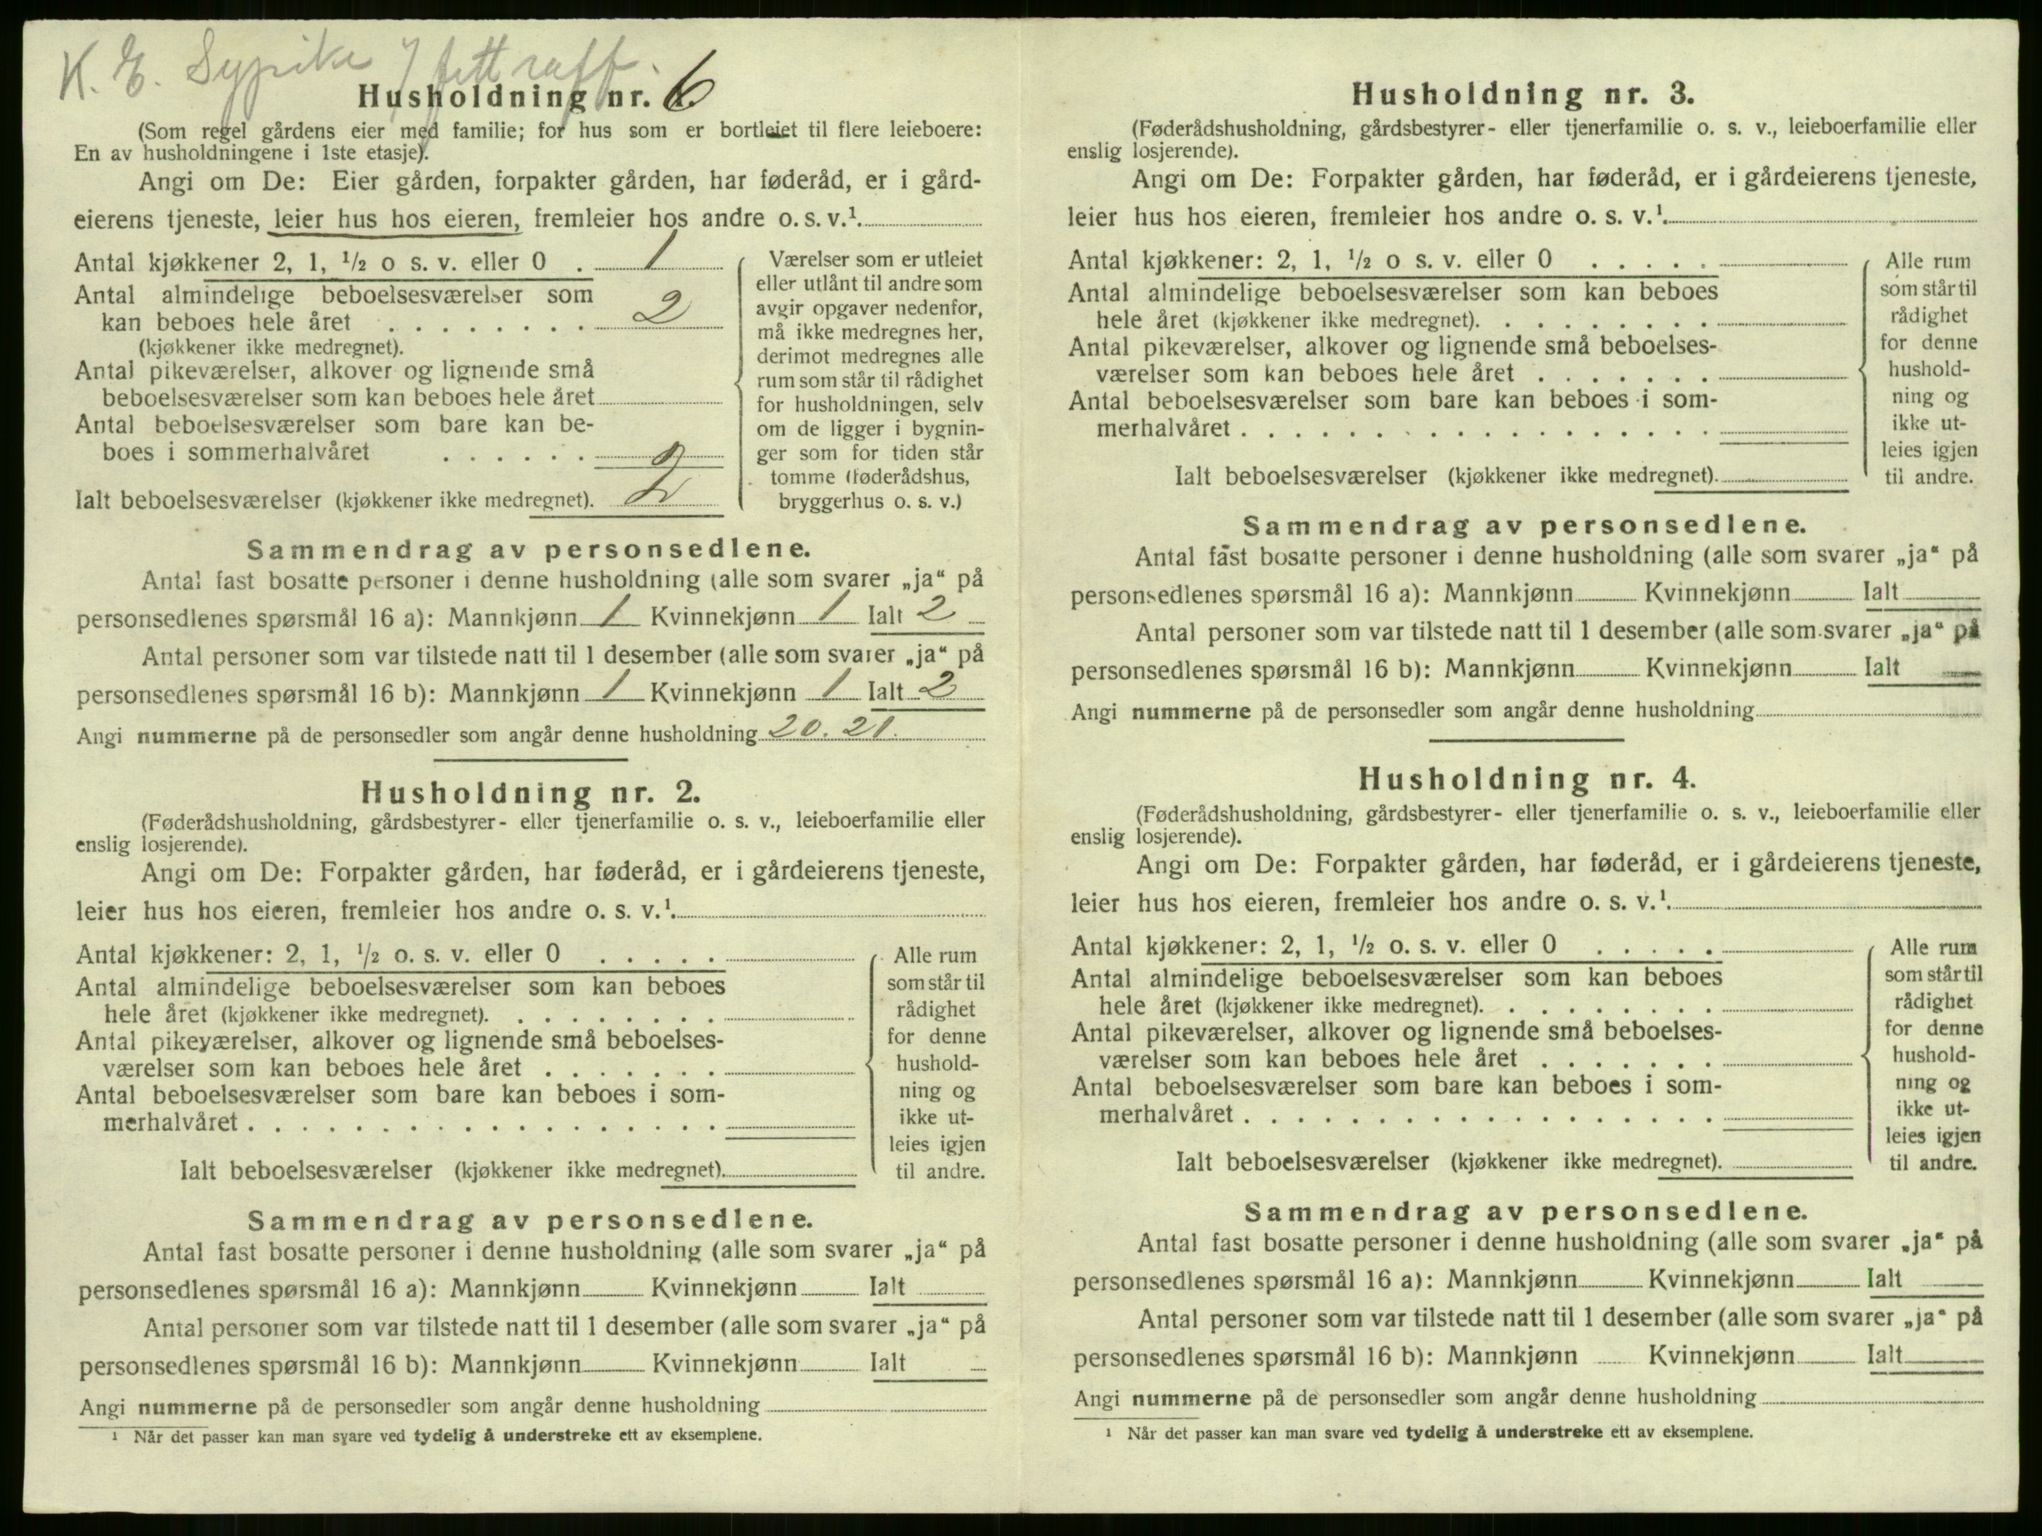 K. E. Sypike / fettraff.
Husholdning nr. 6
(Som regel gårdens eier med familie; for hus som er bortleiet til flere leieboere:
En av husholdningene i 1ste etasje).
Angi om De: Eier gården, forpakter gården, har føderåd, er i gård-
eierens tjeneste, leier hus hos eieren, fremleier hos andre o. s. v.¹
Antal kjøkkener 2, 1, ½ o s. v. eller 0 . 1
Antal almindelige beboelsesværelser som
kan beboes hele året . . . . . . . . 2
(kjøkkener ikke medregnet).
Antal pikeværelser, alkover og lignende små
beboelsesværelser som kan beboes hele året
Antal beboelsesværelser som bare kan be-
boes i sommerhalvåret . . . . . .
Ialt beboelsesværelser (kjøkkener ikke medregnet). 2
Værelser som er utleiet
eller utlånt til andre som
avgir opgaver nedenfor,
må ikke medregnes her,
derimot medregnes alle
rum som står til rådighet
for husholdningen, selv
om de ligger i bygnin-
ger som for tiden står
tomme (føderådshus,
bryggerhus o. s. v.)
Sammendrag av personsedlene.
Antal fast bosatte personer i denne husholdning (alle som svarer „ja“ på
personsedlenes spørsmål 16 a): Mannkjønn 1 Kvinnekjønn 1 Ialt 2
Antal personer som var tilstede natt til 1 desember (alle som svarer „ja“ på
personsedlenes spørsmål 16 b): Mannkjønn 1 Kvinnekjønn 1 Ialt 2
Angi nummerne på de personsedler som angår denne husholdning 20. 21.
Husholdning nr. 2.
(Føderådshusholdning, gårdsbestyrer- eller tjenerfamilie o. s. v., leieboerfamilie eller
enslig losjerende).
Angi om De: Forpakter gården, har føderåd, er i gårdeierens tjeneste,
leier hus hos eieren, fremleier hos andre o. s. v.¹.
Antal kjøkkener: 2, 1, ½ o. s. v. eller 0 . . . . .
Antal almindelige beboelsesværelser som kan beboes
hele året (kjøkkener ikke medregnet). . . . . . . . .
Antal pikeværelser, alkover og lignende små beboelses-
værelser som kan beboes hele året . . . . . . .
Antal beboelsesværelser som bare kan beboes i som-
merhalvåret . . . . . . . . . . . . . . . . .
Ialt beboelsesværelser (kjøkkener ikke medregnet).
Alle rum
som står til
rådighet
for denne
hushold-
ning og
ikke ut-
leies igjen
til andre.
Sammendrag av personsedlene.
Antal fast bosatte personer i denne husholdning (alle som svarer „ja“ på
personsedlenes spørsmål 16 a): Mannkjønn Kvinnekjønn Ialt
Antal personer som var tilstede natt til 1 desember (alle som svarer „ja“ på
personsedlenes spørsmål 16 b): Mannkjønn Kvinnekjønn Ialt
Angi nummerne på de personsedler som angår denne husholdning
¹ Når det passer kan man svare ved tydelig å understreke ett av eksemplene.
Husholdning nr. 3.
(Føderådshusholdning, gårdsbestyrer- eller tjenerfamilie o. s. v., leieboerfamilie eller
enslig losjerende).
Angi om De: Forpakter gården, har føderåd, er i gårdeierens tjeneste,
leier hus hos eieren, fremleier hos andre o. s. v.¹.
Antal kjøkkener: 2, 1, ½ o s. v. eller 0 . . . . .
Antal almindelige beboelsesværelser som kan beboes
hele året (kjøkkener ikke medregnet). . . . . . . . .
Antal pikeværelser, alkover og lignende små beboelses-
værelser som kan beboes hele året . . . . . . .
Antal beboelsesværelser som bare kan beboes i som-
merhalvåret . . . . . . . . . . . . . . . . .
Ialt beboelsesværelser (kjøkkener ikke medregnet).
Alle rum
som står til
rådighet
for denne
hushold-
ning og
ikke ut-
leies igjen
til andre.
Sammendrag av personsedlene.
Antal fast bosatte personer i denne husholdning (alle som svarer „ja“ på
personsedlenes spørsmål 16 a): Mannkjønn Kvinnekjønn Ialt
Antal personer som var tilstede natt til 1 desember (alle som svarer „ja“ på
personsedlenes spørsmål 16 b): Mannkjønn Kvinnekjønn Ialt
Angi nummerne på de personsedler som angår denne husholdning
Husholdning nr. 4.
(Føderådshusholdning, gårdsbestyrer- eller tjenerfamilie o. s. v., leieboerfamilie eller
enslig losjerende).
Angi om De: Forpakter gården, har føderåd, er i gårdeierens tjeneste,
leier hus hos eieren, fremleier hos andre o. s. v.¹.
Antal kjøkkener: 2, 1, ½ o. s. v. eller 0 . . . . .
Antal almindelige beboelsesværelser som kan beboes
hele året (kjøkkener ikke medregnet). . . . . . . . .
Antal pikeværelser, alkover og lignende små beboelses-
værelser som kan beboes hele året . . . . . . .
Antal beboelsesværelser som bare kan beboes i som-
merhalvåret . . . . . . . . . . . . . . . . .
Ialt beboelsesværelser (kjøkkener ikke medregnet).
Alle rum
som står til
rådighet
for denne
hushold-
ning og
ikke ut-
leies igjen
til andre.
Sammendrag av personsedlene.
Antal fast bosatte personer i denne husholdning (alle som svarer „ja“ på
personsedlenes spørsmål 16 a): Mannkjønn Kvinnekjønn Ialt
Antal personer som var tilstede natt til 1 desember (alle som svarer „ja“ på
personsedlenes spørsmål 16 b): Mannkjønn Kvinnekjønn Ialt
Angi nummerne på de personsedler som angår denne husholdning
¹ Når det passer kan man svare ved tydelig å understreke ett av eksemplene.